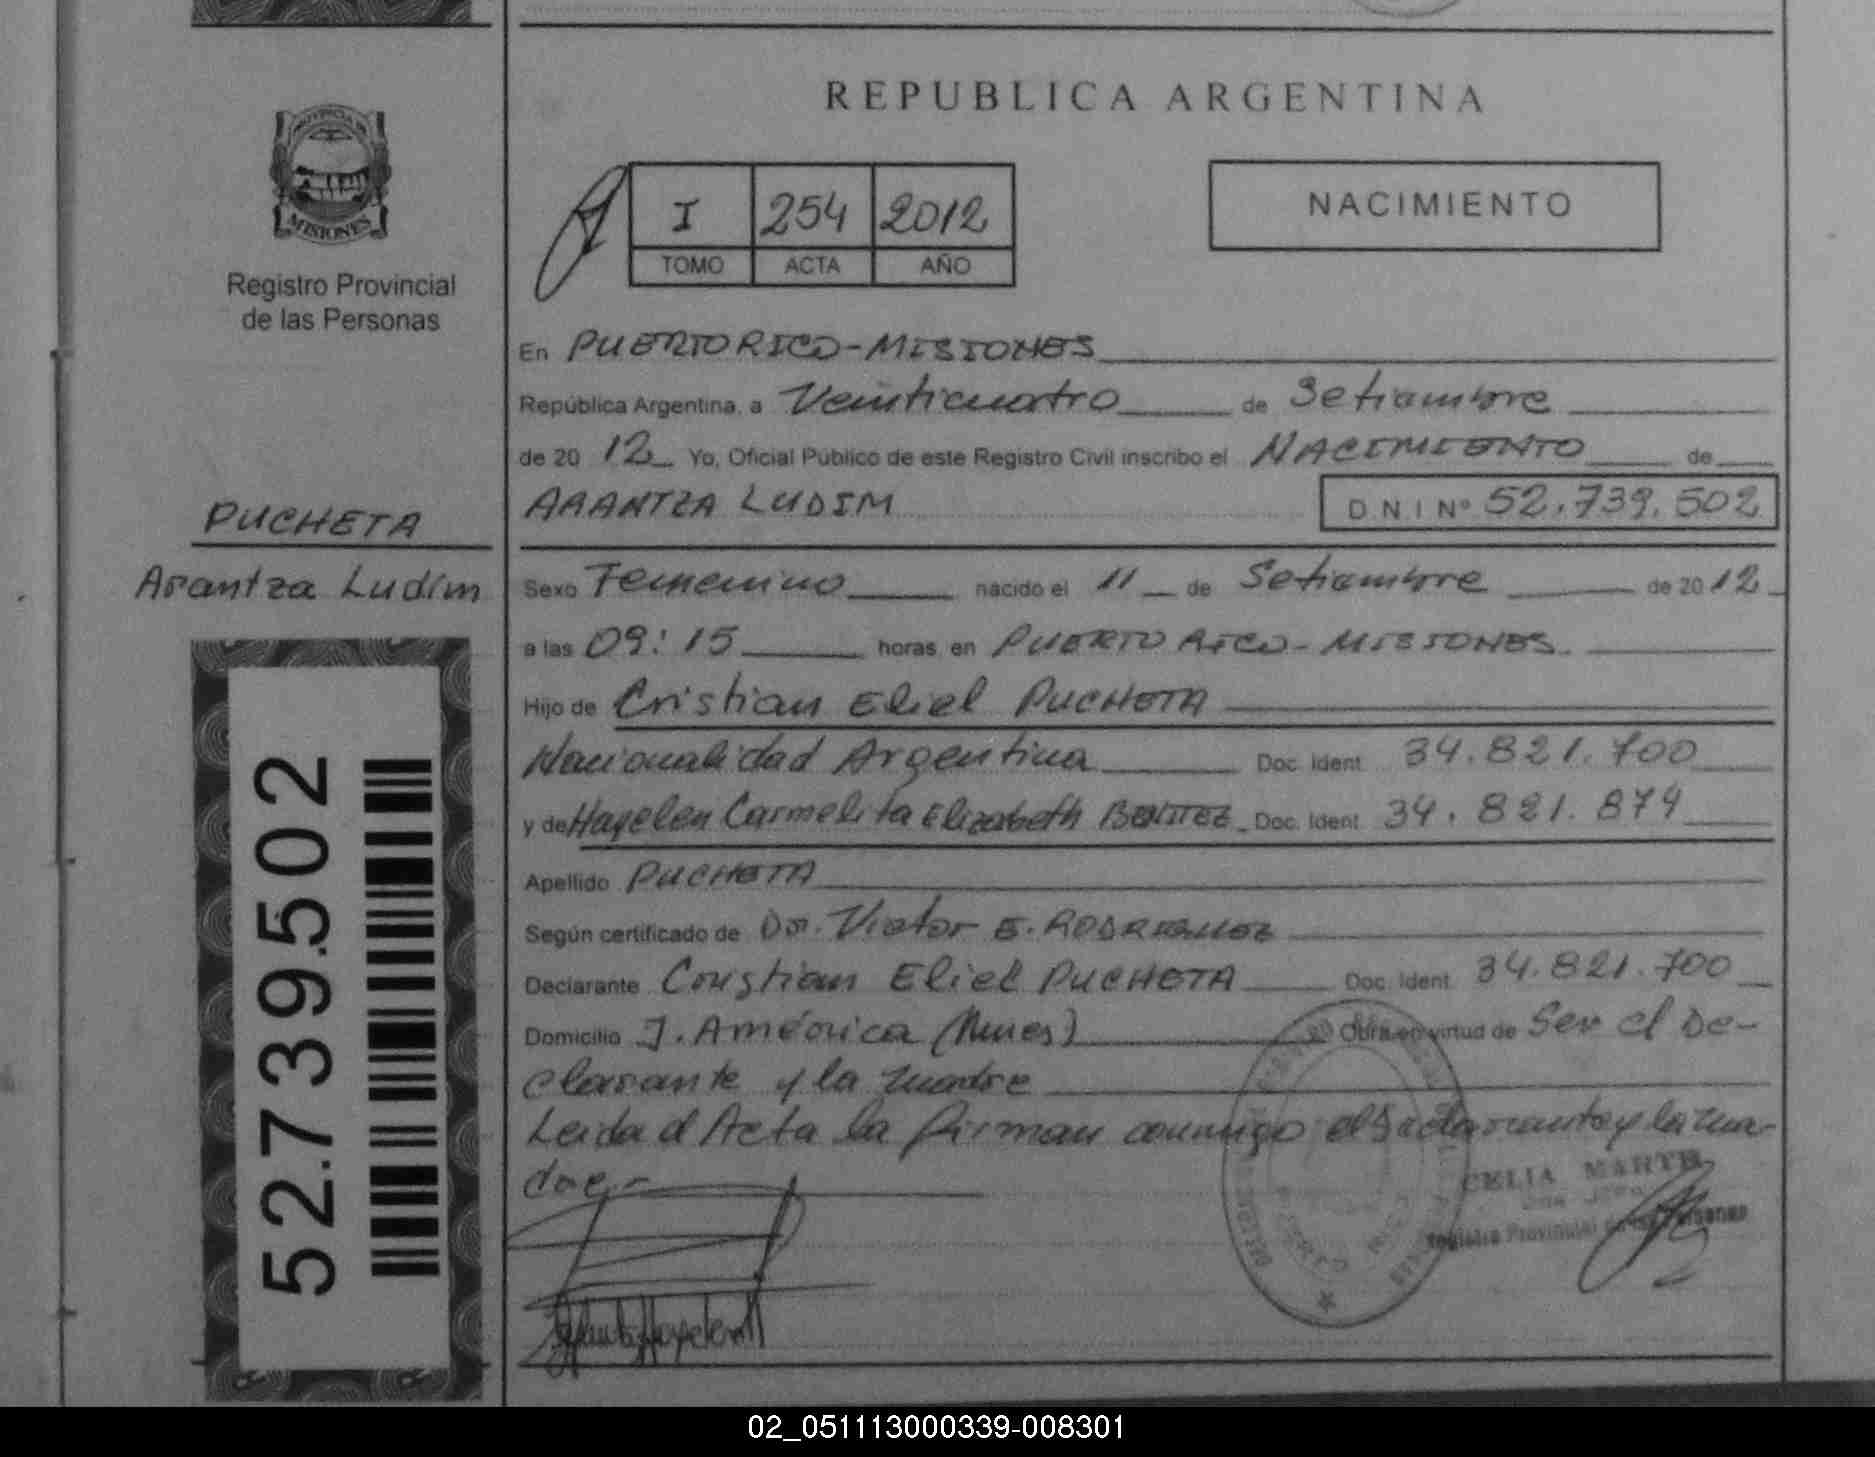 REPUBLICA ARGENTINA
PROVINCIA DE
MISIONES
Registro Provincial
de las Personas
I 254 2012
TOMO ACTA AÑO
NACIMIENTO
En PUERTO RICO-MISIONES
República Argentina, a Veinticuatro de Setiembre
de 20 12 Yo, Oficial Público de este Registro Civil inscribo el NACIMIENTO de
ARANTZA LUDIM D.N.I Nº 52.739.502
PUCHETA
Arantza Ludim
Sexo Femenino nacido el 11 de Setiembre de 20 12
a las 09:15 horas, en PUERTO RICO-MISIONES.
Hijo de Cristian Eliel PUCHETA
Nacionalidad Argentina Doc. Ident. 34.821.700
y de Hayelen Carmelita Elizabeth BENITEZ Doc. Ident. 34.821.874
Apellido PUCHETA
Según certificado de Dr. Victor E. RODRIGUEZ
Declarante Cristian Eliel PUCHETA Doc. Ident. 34.821.700
Domicilio J. América (Mnes) Obra en virtud de Ser el De-
clarante y la madre
Leida el Acta la firman conmigo el Declarante y la ma-
dre.-
CELIA
Registro Provincial de las Personas
PUERTO RICO
52.739.502
02_051113000339-008301